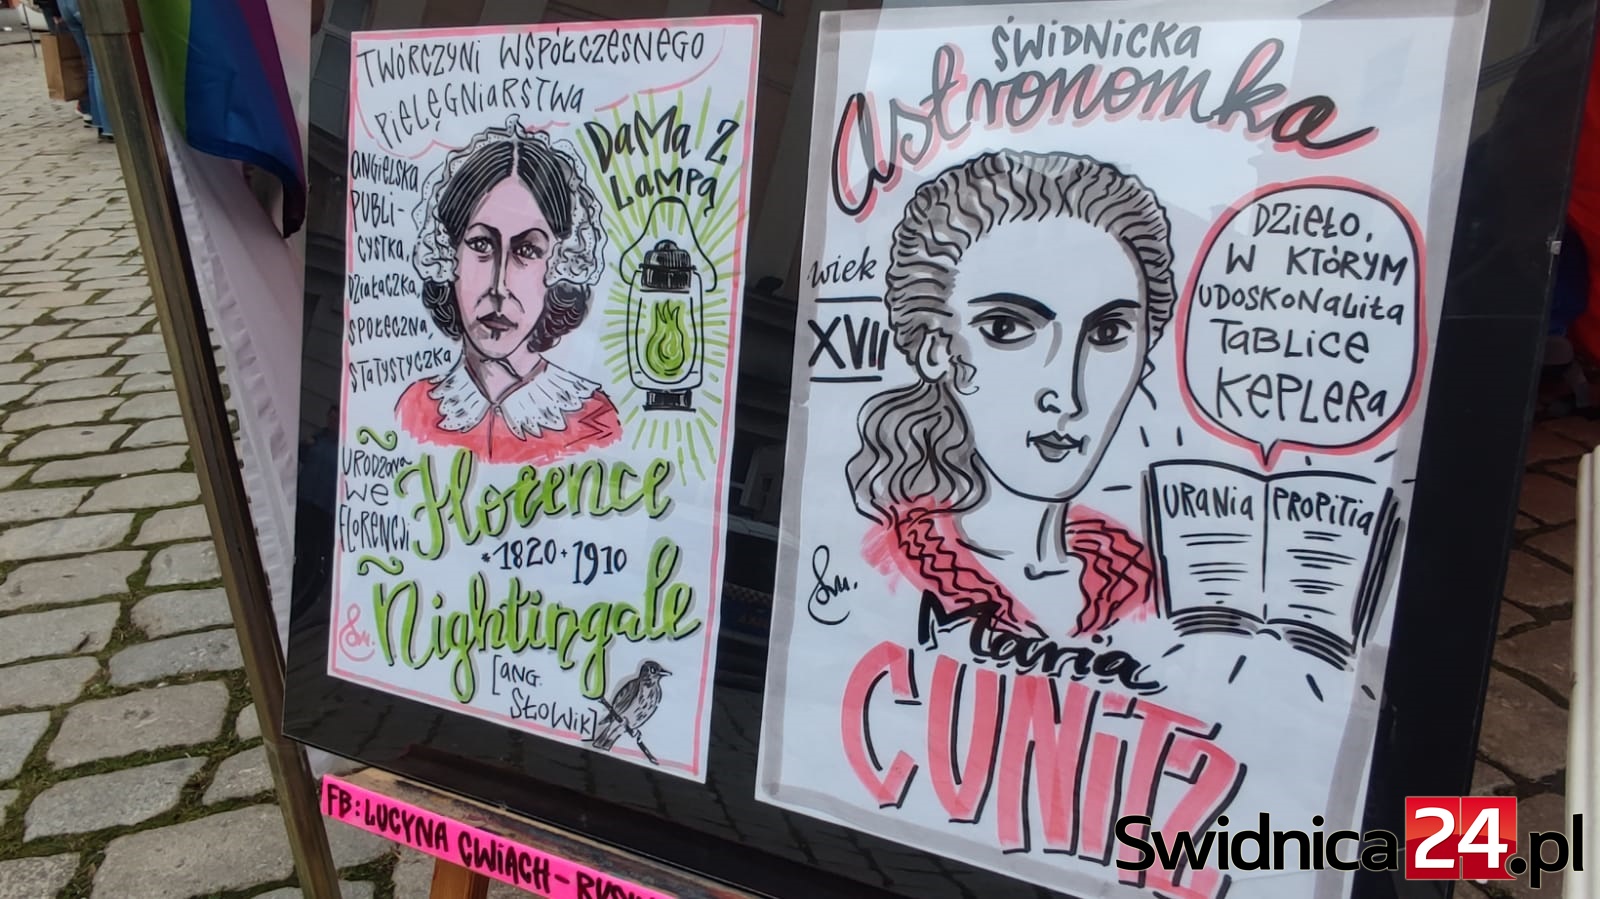 TWÓRCZYNI WSPÓŁCZESNEGO
PIELĘGNIARSTWA
ANGIELSKA
PUBLI-
CYSTKA,
DZIAŁACZKA
SPOŁECZNA,
STATYSTYCZKA
DAMA Z
LAMPĄ
URODZONA
WE
FLORENCJI
Florence
*1820+1910
Nightingale
[ANG.
SŁOWIK]
Sm.
ŚWIDNICKA
Astronomka
wiek
XVII
DZIEŁO,
W KTÓRYM
UDOSKONALIŁA
TABLICE
KEPLERA
URANIA PROPITIA
Sm.
Maria
CUNITZ
FB: LUCYNA CWIACH -
Swidnica24.pl